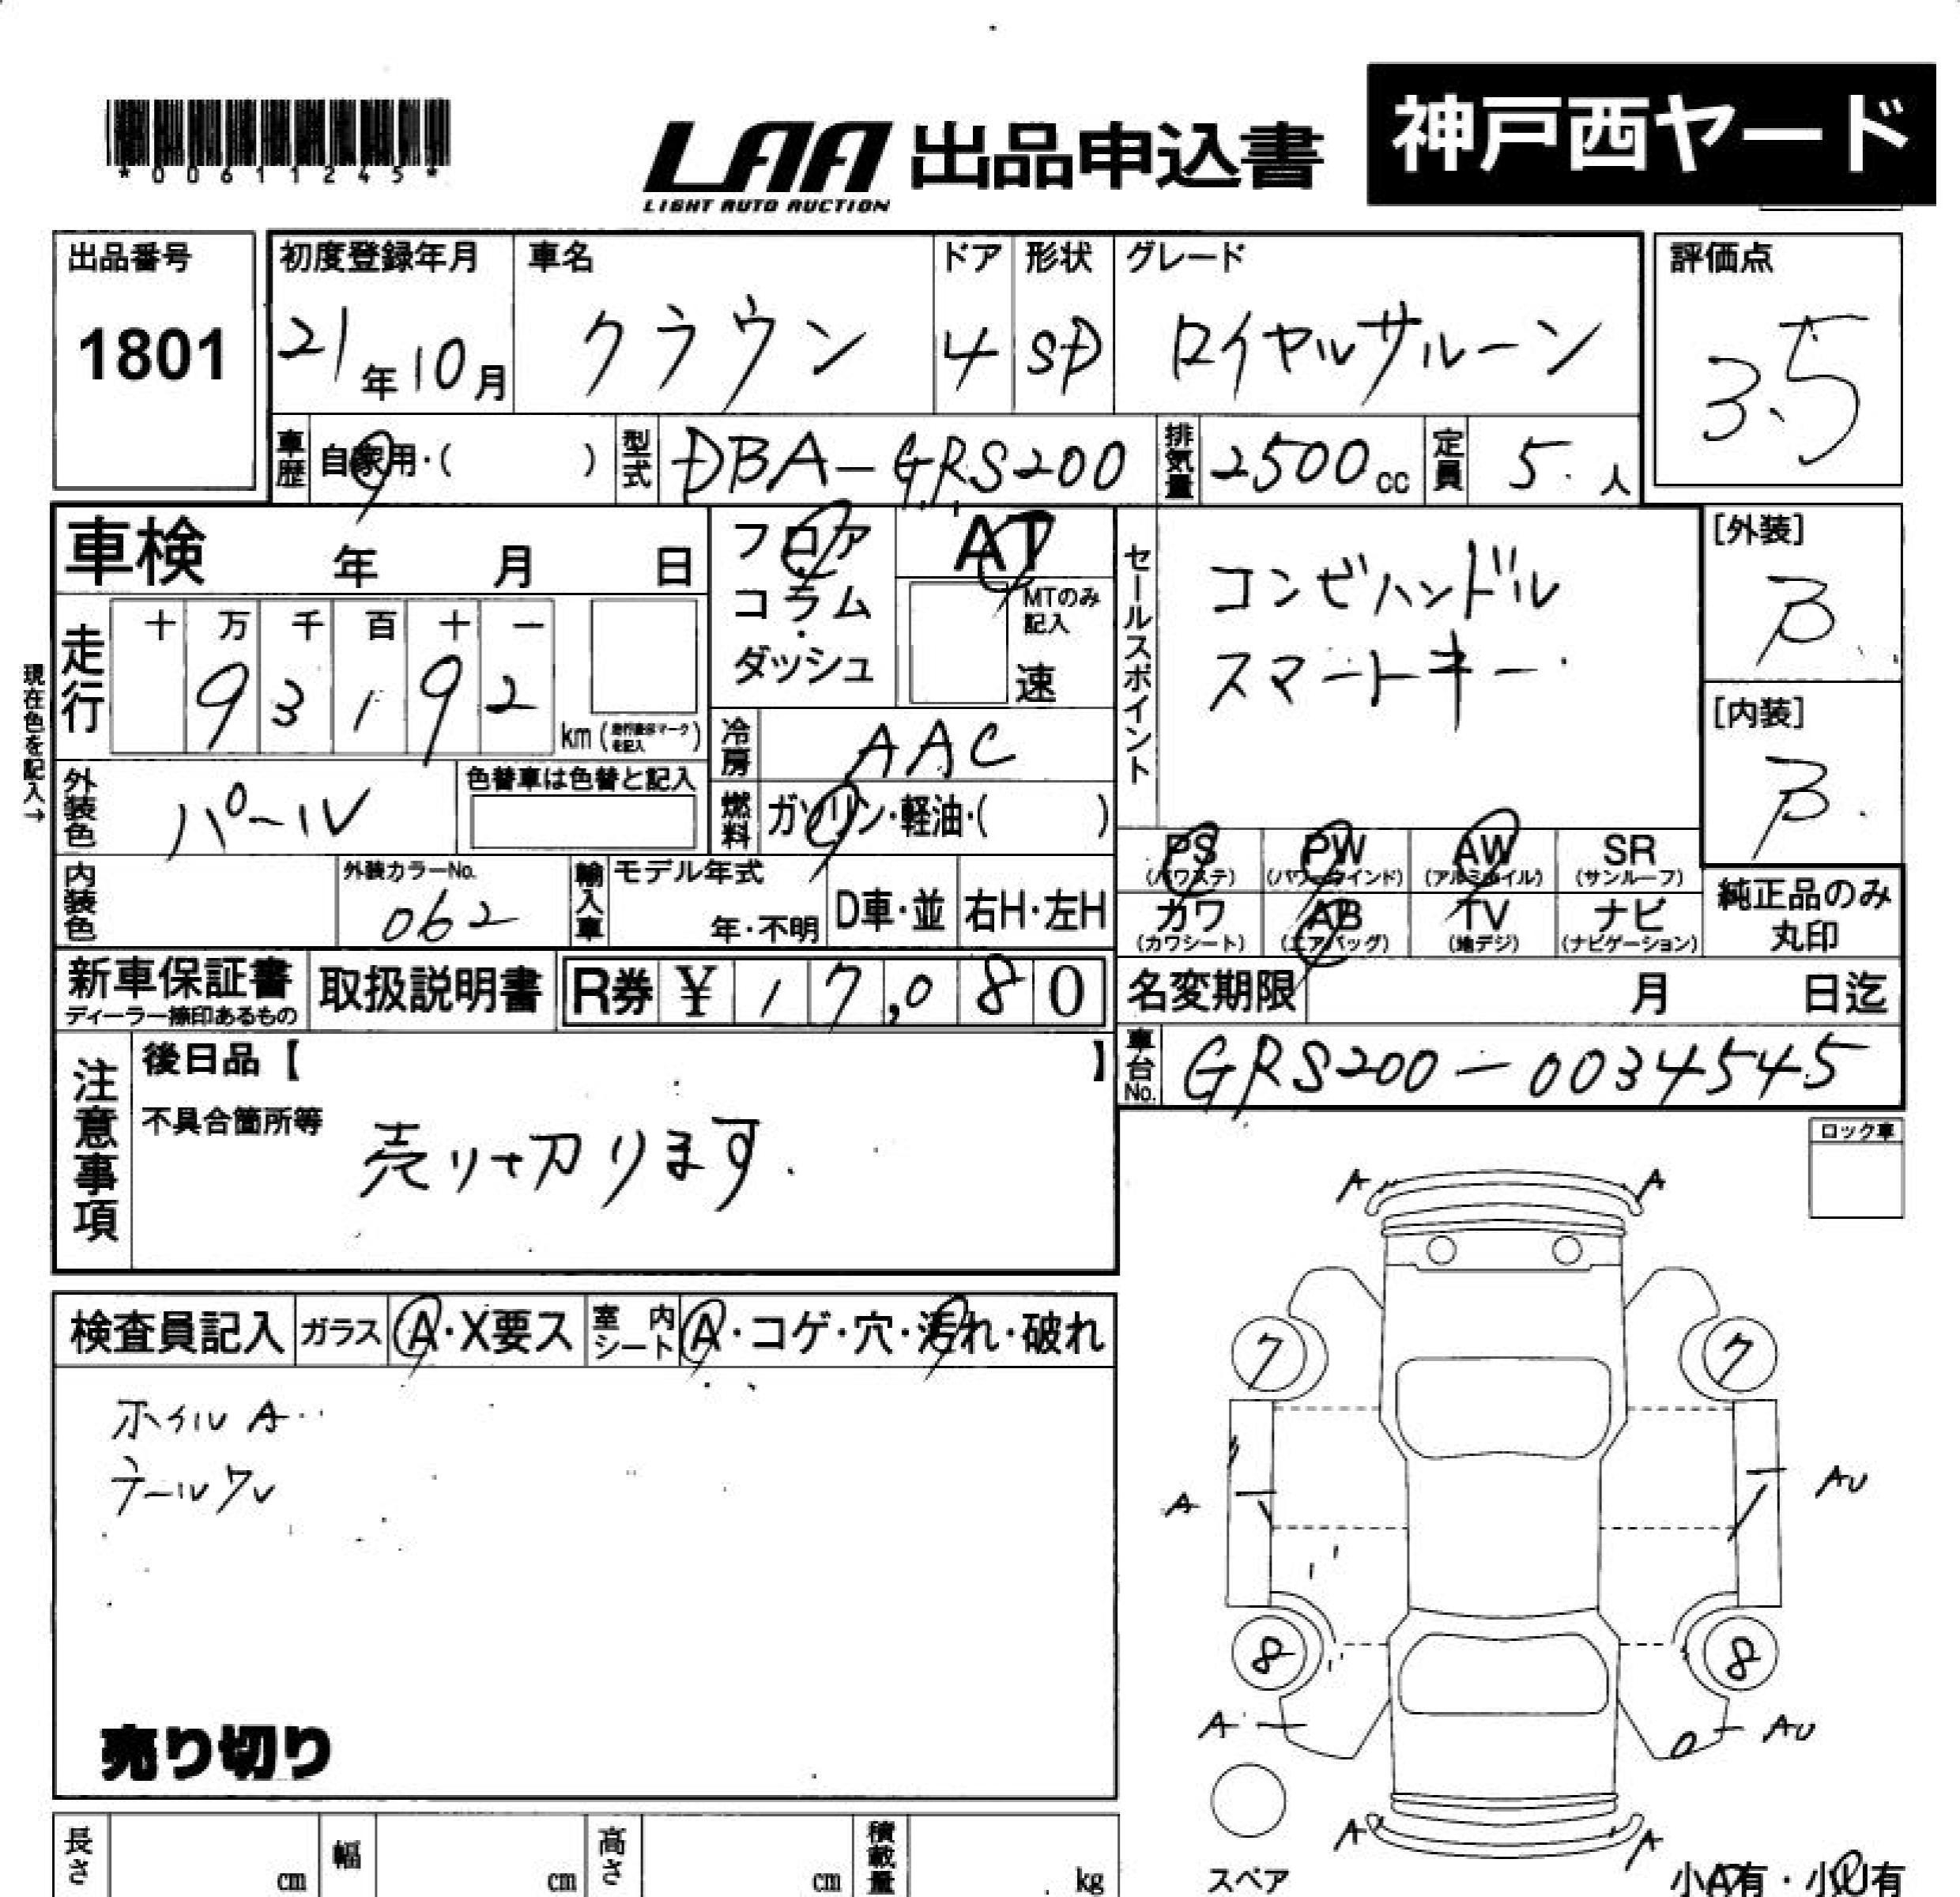 *00611245*
LAA 出品申込書 神戸西ヤード
LIGHT AUTO AUCTION
出品番号 初度登録年月 車名 ドア 形状 グレード 評価点
1801 21年10月 クラウン 4 SD ロイヤルサルーン 3.5
車歴 自家用・( ) 型式 DBA-GRS200 排気量 2500cc 定員 5人
車検 年 月 日 フロア AT セールスポイント コンビハンドル [外装]
コラム・ MTのみ記入 B
ダッシュ 速 スマートキー
現在色を記入→
走行 十 万 千 百 十 一
9 3 1 9 2 km ( ) [内装]
冷房 AAC B
外装色 パール 色替車は色替と記入 燃料 ガソリン・軽油・( )
PS (パワステ) PW (パワーウインド) AW (アルミホイル) SR (サンルーフ)
内装色 外装カラーNo. 062 輸入車 モデル年式 年・不明 D車・並 右H・左H
カワ (カワシート) AB (エアバッグ) TV (地デジ) ナビ (ナビゲーション) 純正品のみ丸印
新車保証書 取扱説明書 R券 ¥ 17,080 名変期限 月 日迄
ディーラー捺印あるもの
注意事項 後日品【 】 車台No. GRS200-0034545
不具合箇所等 売り切ります。
ロック車
A A
検査員記入 ガラス A・X要ス 室内シート A・コゲ・穴・汚れ・破れ
7 7
ホイルA
テールワレ
A AU
8 8
A AU
売り切り
A A
長さ cm 幅 cm 高さ cm 積載量 kg スペア 小A有・小U有